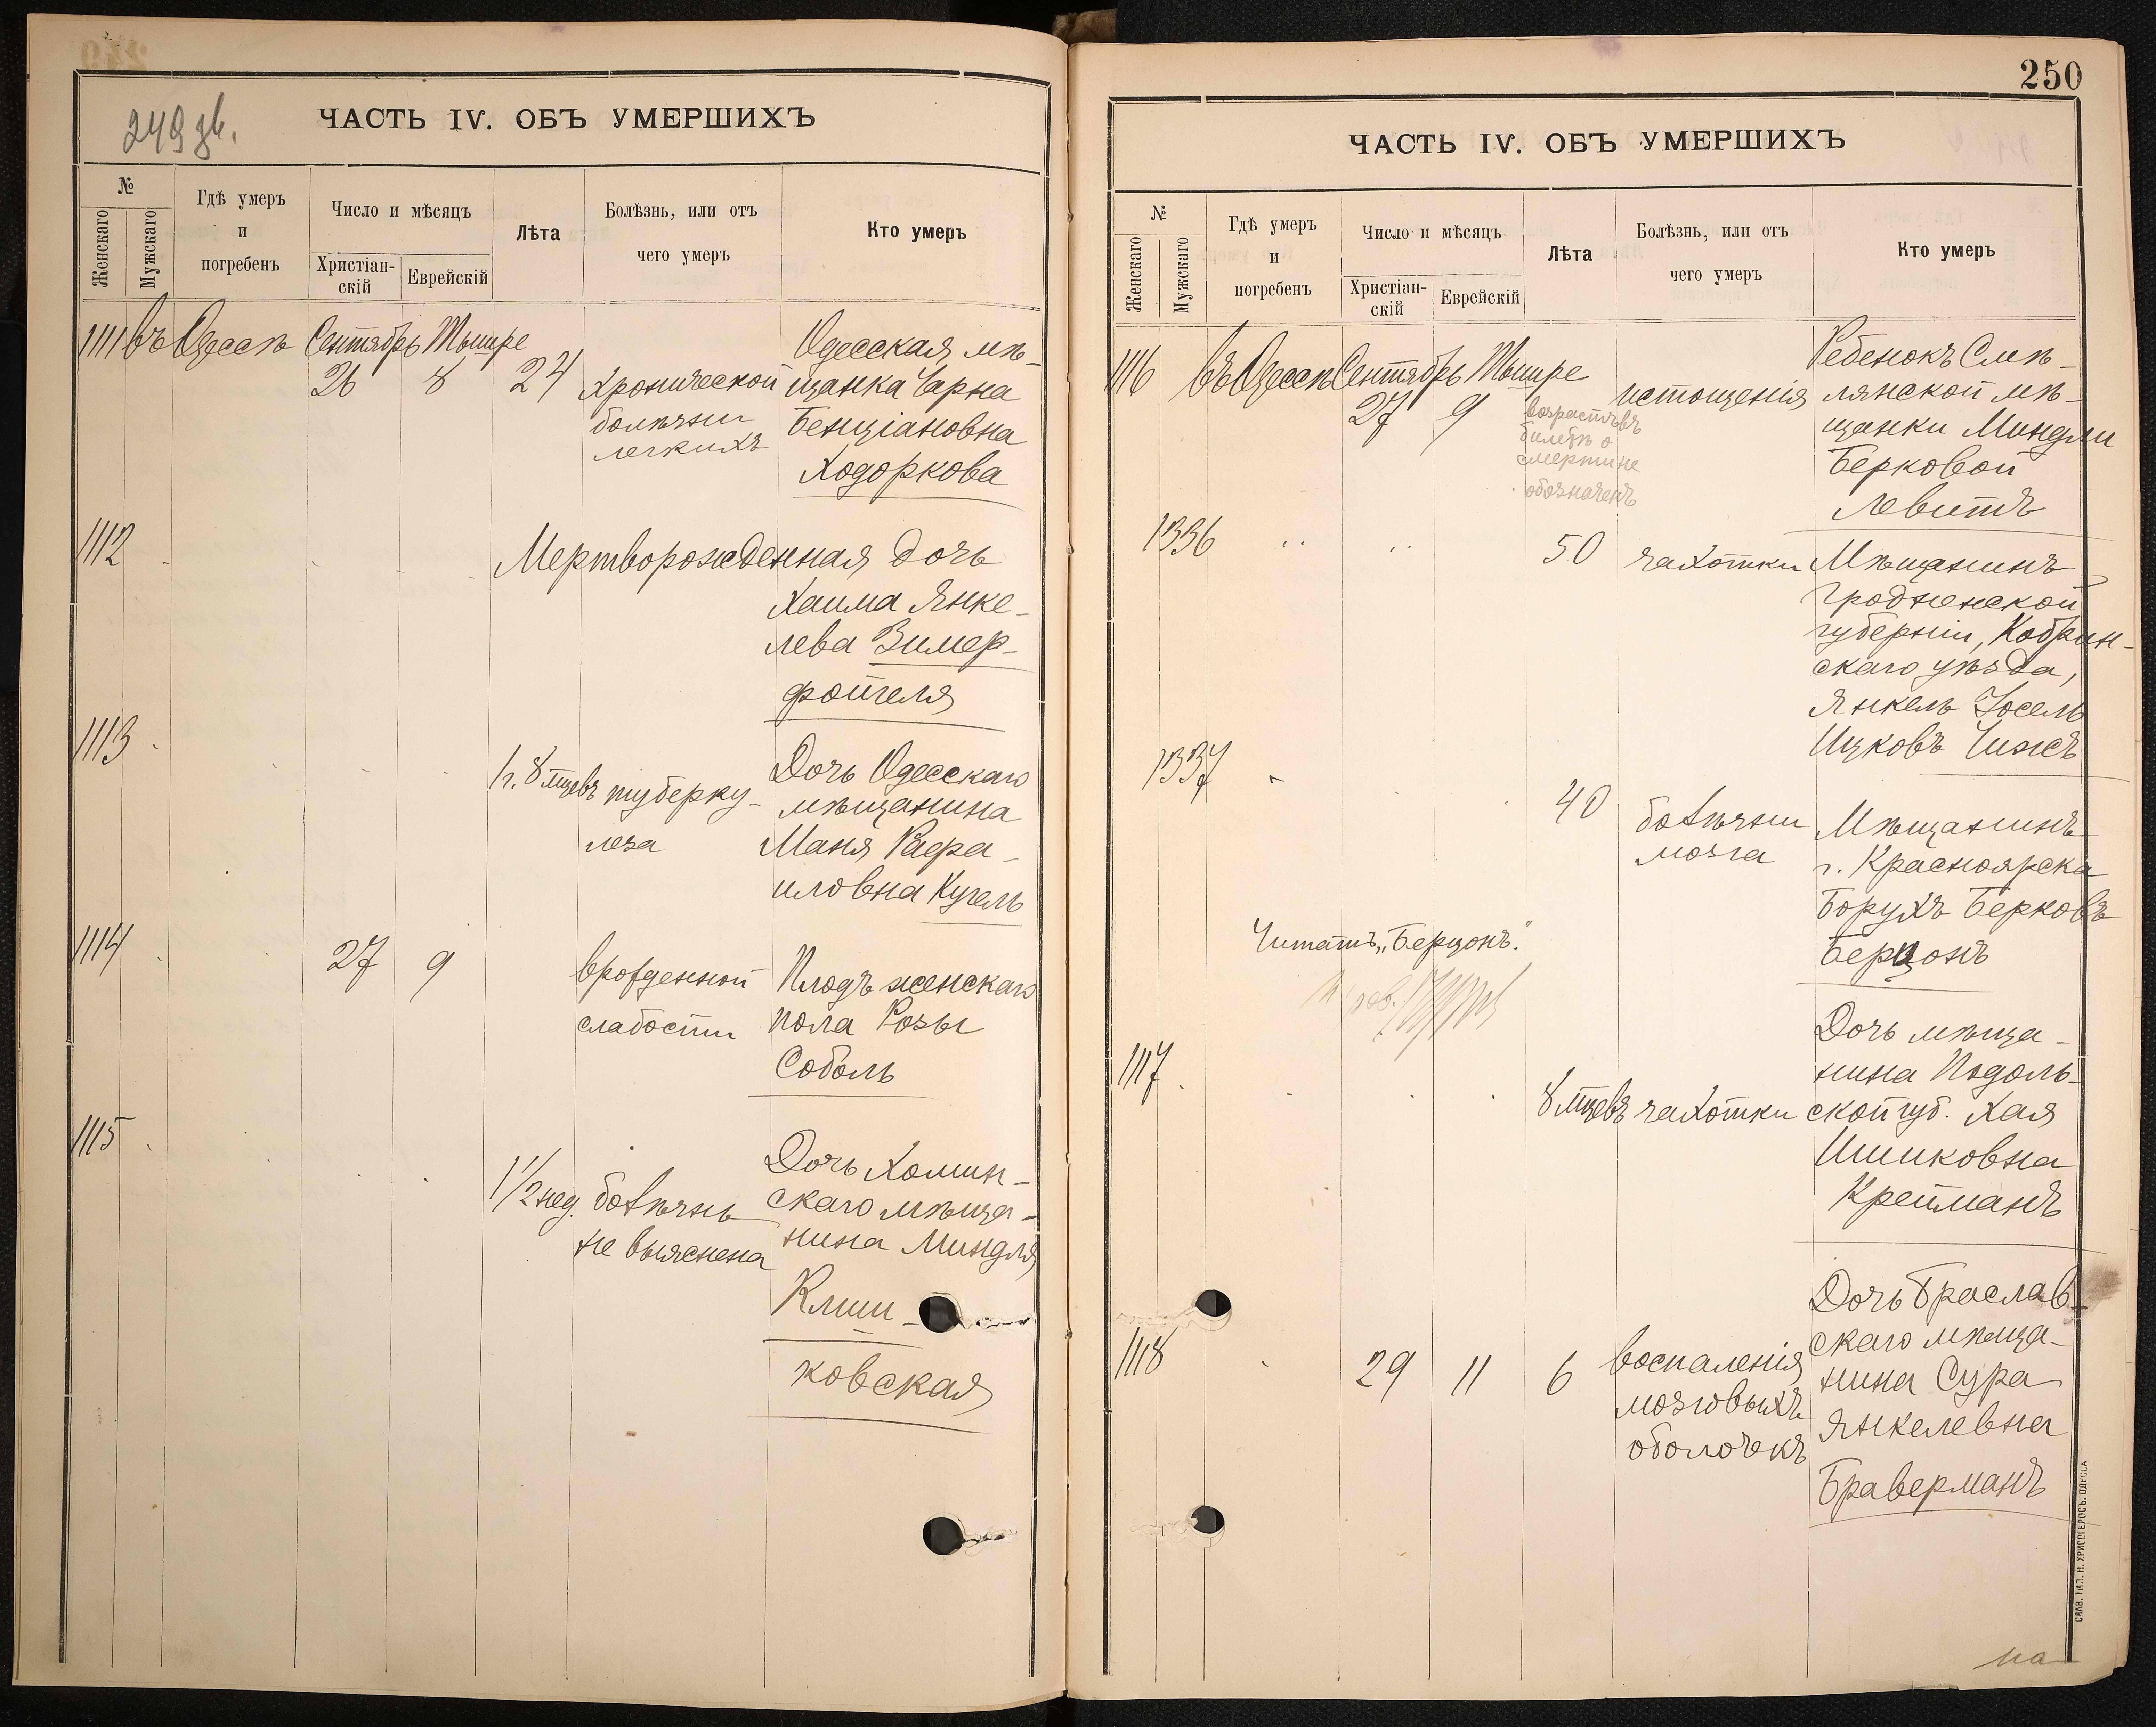 249 зв.
ЧАСТЬ IV. ОБЪ УМЕРШИХЪ
№
Женскаго
Мужскаго
Гдѣ умеръ
и
погребенъ
Число и мѣсяцъ
Христіан-
скій
Еврейскій
Лѣта
Болѣзнь, или отъ
чего умеръ
Кто умеръ
1111 въ Одессѣ Сентябрь Тышре
26 8 24
хронической
болѣзни
легкихъ
Одесская мѣ-
щанка Чарна
Бенціановна
Ходоркова
1112
Мертворожденная дочь
Хаима Янке-
лева Зимер-
фойгеля
1113
1 г. 8 мцевъ
туберку-
леза
Дочь Одесскаго
мѣщанина
Маня Рафа-
иловна Кугель
1114
27 9
врожденной
слабости
Плодъ женскаго
пола Розы
Соболь
1115
1 1/2 нед.
болѣзнь
не выяснена
Дочь Хомин-
скаго мѣща-
нина Миндля
Клим-
ковская
250
ЧАСТЬ IV. ОБЪ УМЕРШИХЪ
№
Женскаго
Мужскаго
Гдѣ умеръ
и
погребенъ
Число и мѣсяцъ
Христіан-
скій
Еврейскій
Лѣта
Болѣзнь, или отъ
чего умеръ
Кто умеръ
1116 въ Одессѣ Сентябрь Тышре
27 9
возрастъ въ
билетѣ о
смерти не
обозначенъ
истощенія
Ребенокъ Смѣ-
лянской мѣ-
щанки Миндли
Берковой
Левитъ
1336
50 чахотки
Мѣщанинъ
Гродненской
губерніи, Кобрин-
скаго уѣзда,
Янкель Іосель
Ицковъ Чижъ
1337
40
болѣзни
мозга
Мѣщанинъ
г. Красноярска
Борухъ Берковъ
Берцонъ
Читать „Берцонъ."
1117
8 мцевъ чахотки
Дочь мѣща-
нина Подоль-
ской губ. Хая
Ишиковна
Крейманъ
1118
29 11 6
воспаленія
мозговыхъ
оболочекъ
Дочь Браслав-
скаго мѣща-
нина Сура
Янкелевна
Браверманъ
СЛАВ. ТИП. Н. ХРИСОГЕЛОСЪ. ОДЕССА